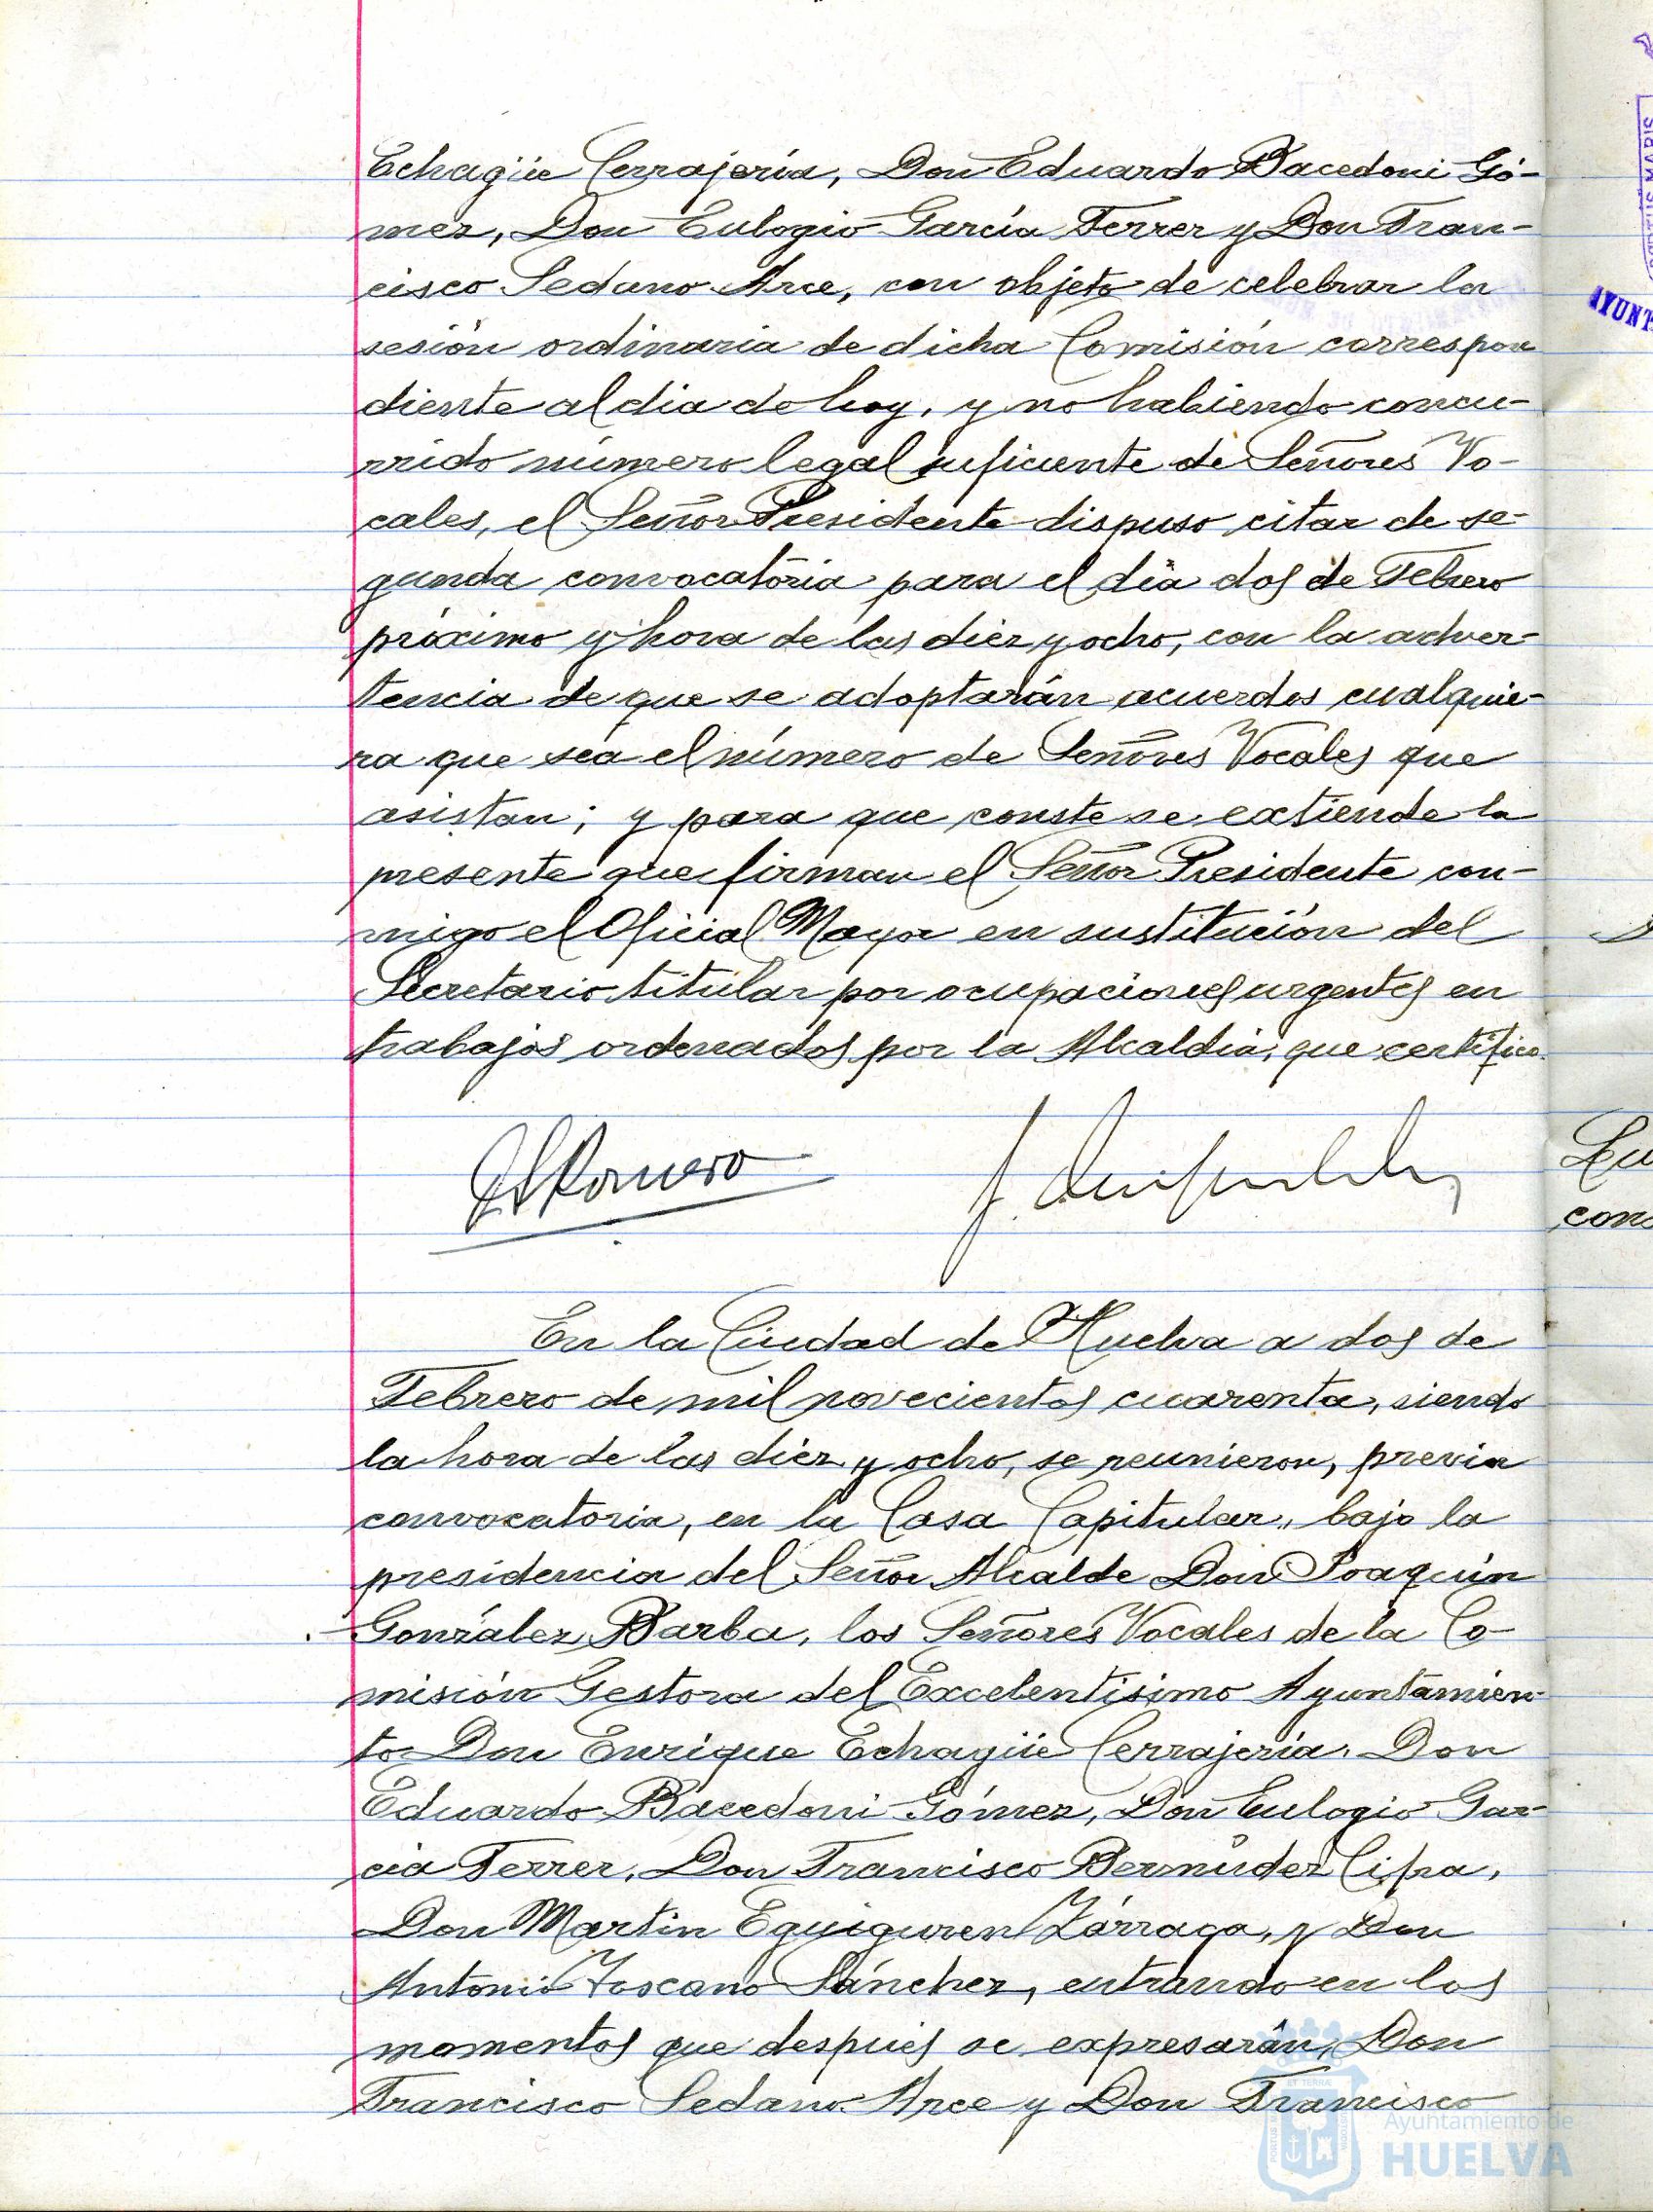 Echagüe Cerrajería, Don Eduardo Bacedoni Gó-
mez, Don Eulogio García Ferrer y Don Fran-
cisco Sedano Arce, con objeto de celebrar la
sesión ordinaria de dicha Comisión correspon
diente al dia de hoy, y no habiendo concu-
rrido número legal suficiente de Señores Vo-
cales, el Señor Presidente dispuso citar de se-
gunda convocatoria para el día dos de Febrero
próximo y hora de las diez y ocho, con la adver-
tencia de que se adoptarán acuerdos cualquie-
ra que sea el número de Señores Vocales que
asistan; y para que conste se extiende la
presente que firman el Señor Presidente con-
migo el Oficial Mayor en sustitución del
Secretario titular por ocupaciones urgentes en
trabajos ordenados por la Alcaldia, que certifico.
Romero
En la Ciudad de Huelva a dos de
Febrero de mil novecientos cuarenta, siendo
la hora de las diez y ocho, se reunieron, previa
convocatoria, en la Casa Capitular, bajo la
presidencia del Señor Alcalde Don Joaquín
González Barba, los Señores Vocales de la Co-
misión Gestora del Excelentísimo Ayuntamien-
to Don Enrique Echagüe Cerrajería, Don
Eduardo Bacedoni Gómez, Don Eulogio Gar-
cia Ferrer, Don Francisco Bermúdez Cifra,
Don Martin Eguiguren Zárraga, y Don
Antonio Toscano Sánchez, entrando en los
momentos que después se expresarán, Don
Francisco Sedano Arce y Don Francisco
Ayuntamiento de
HUELVA